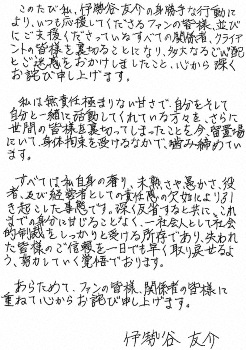 このたび私、伊勢谷友介の身勝手な行動に
より、いつも応援してくださるファンの皆様、並び
にご支援くださっているすべての関係者、クライア
ントの皆様を裏切ることになり、多大なるご心配
とご迷惑をおかけしましたこと、心から深く
お詫び申し上げます。
私は無責任極まりない甘さで、自分をそして
自分と一緒に活動してくれている方々を、さらに
世間の皆様を裏切ってしまったことを今、留置場
にいて、身体拘束を受けるなかで、噛み締めてい
ます。
すべては私自身の奢り、未熟さや愚かさ、役
者、及び経営者としての責任感の欠如により引
き起こした事態です。深く反省すると共に、これ
までの自分に甘じることなく、一社会人として社会
的制裁をしっかりと受ける所存であり、失われ
た皆様のご信頼を一日でも早く取り戻せるよ
う、努力していく覚悟でおります。
あらためて、ファンの皆様、関係者の皆様に
重ねて心からお詫び申し上げます。
伊勢谷 友介